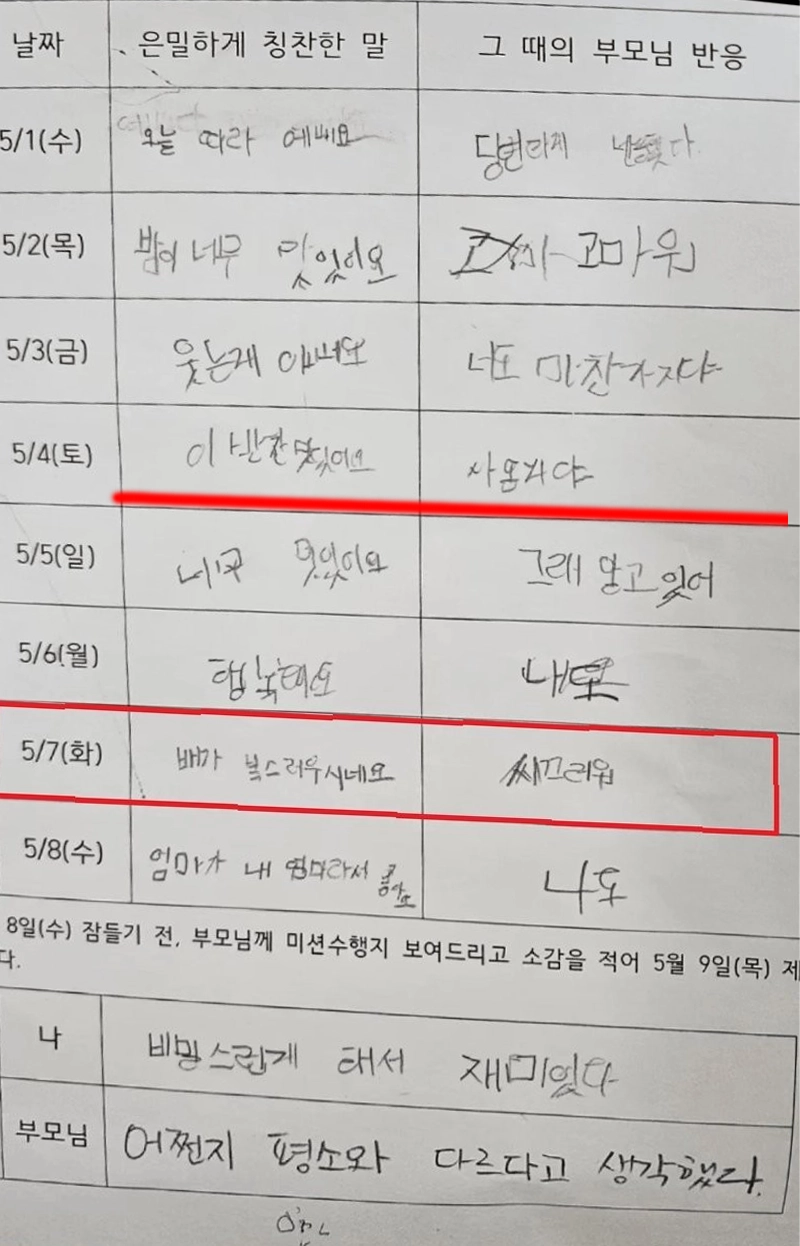 날짜 은밀하게 칭찬한 말 그 때의 부모님 반응
5/1(수) 오늘 따라 예뻐요
5/2(목) 밥이 너무 맛있어요 고마워
5/3(금) 웃는게 이뻐요 너도 마찬가지야
5/4(토) 이 반찬 맛있어요
5/5(일) 그래 알고 있어
5/6(월) 행복해요
5/7(화) 배가 복스러우시네요 씨끄러워
5/8(수) 엄마가 내 엄마라서 좋아요 나도
8일(수) 잠들기 전, 부모님께 미션수행지 보여드리고 소감을 적어 5월 9일(목) 제
다.
나 비밀스럽게 해서 재미있다
부모님 어쩐지 평소와 다르다고 생각했다.